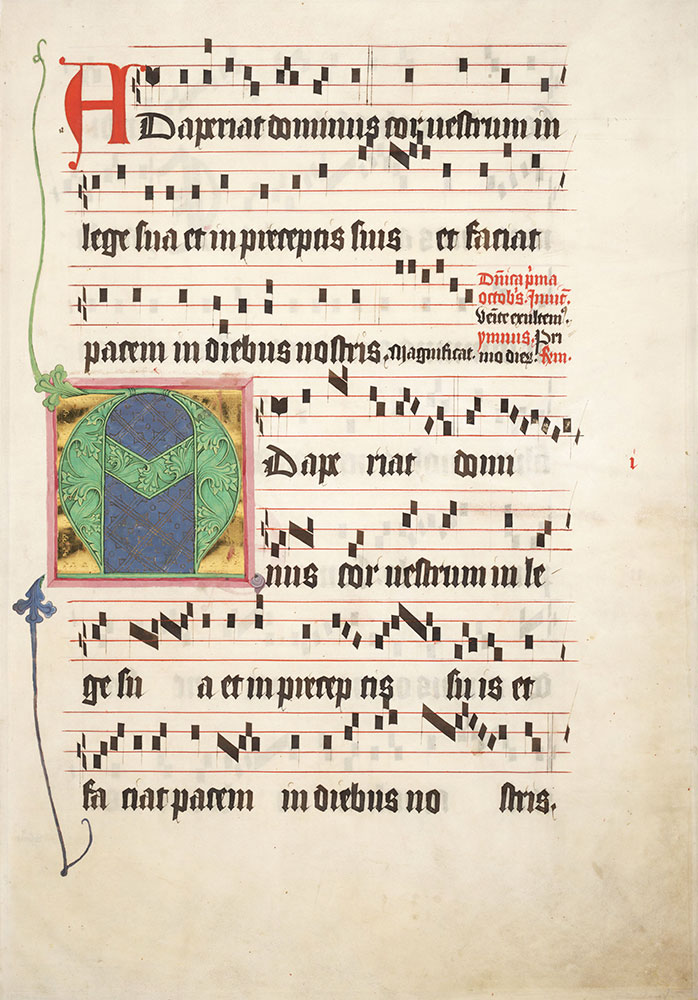 ADaperiat dominus cor vestrum in
lege sua et in preceptis suis et faciat
pacem in diebus nostris. Magnificat.
Dnica pma
octobs. Inuit.
Venite exultem⁹.
ymnus. Pri
mo dier. ℟em.
ADape riat domi
nus cor vestrum in le
i
ge su a et in precep tis su is et
fa ciat pacem in diebus no stris.